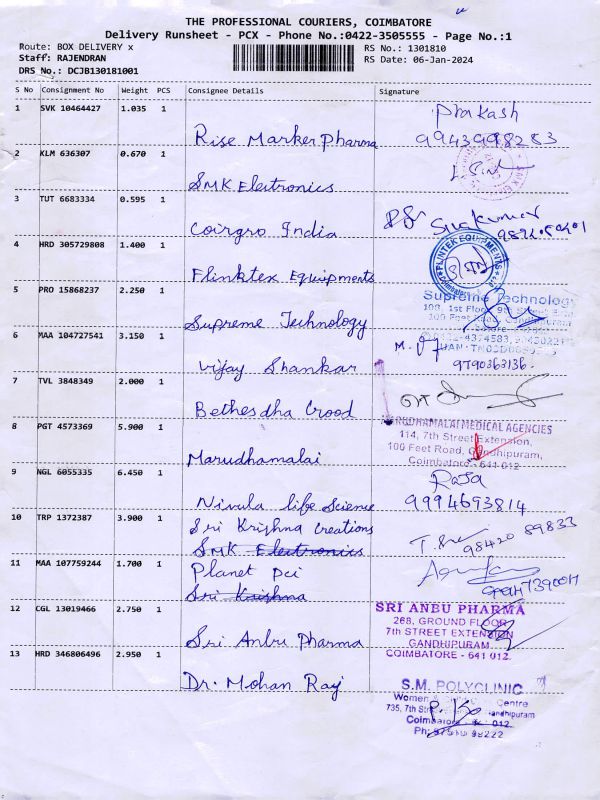 THE PROFESSIONAL COURIERS, COIMBATORE
Delivery Runsheet - PCX - Phone No.:0422-3505555 - Page No.:1
Route: BOX DELIVERY x
RS No.: 1301810
Staff: RAJENDRAN
RS Date: 06-Jan-2024
DRS No.: DCJB130181001
S No Consignment No Weight PCS Consignee Details Signature
1 SVK 10464427 1.035 1
Prakash
Rise Marker Pharma
9943998253
2 KLM 636307 0.670 1
SMK Electronics
3 TUT 6683334 0.595 1
Coirgro India
Sugkumar
4 HRD 305729808 1.400 1
FLINTEK EQUIPMENTS
Flinktex Equipments
5 PRO 15868237 2.250 1
Supreme Technology
Supreme Technology
6 MAA 104727541 3.150 1
Vijay Shankar
9790363136.
7 TVL 3848349 2.000 1
Bethesdha Crood
8 PGT 4573369 5.900 1
MARUDHAMALAI MEDICAL AGENCIES
114, 7th Street Extension,
100 Feet Road, Gandhipuram,
Coimbatore - 641 012
Marudhamalai
9 NGL 6055335 6.450 1
Raja
Nivula life Science
9994693814
10 TRP 1372387 3.900 1
Sri Krishna Creations
SMK Electronics
98420 89833
11 MAA 107759244 1.700 1
Planet pci
Sri Krishna
12 CGL 13019466 2.750 1
SRI ANBU PHARMA
268, GROUND FLOOR
7th STREET EXTENSION
GANDHIPURAM
COIMBATORE - 641 012.
Sri Anbu Pharma
13 HRD 346806496 2.950 1
Dr. Mohan Raj
S.M. POLYCLINIC
Centre
735, 7th Gandhipuram
012